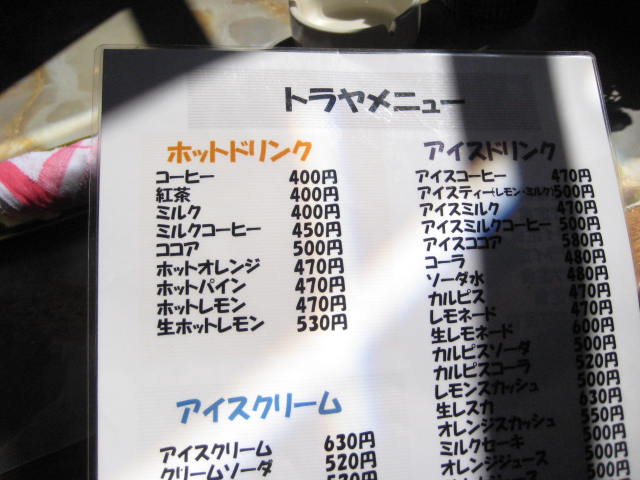 トラヤメニュー
ホットドリンク
コーヒー 400円
紅茶 400円
ミルク 400円
ミルクコーヒー 450円
ココア 500円
ホットオレンジ 470円
ホットパイン 470円
ホットレモン 470円
生ホットレモン 530円
アイスクリーム
アイスクリーム 630円
クリームソーダ 520円
アイスドリンク
アイスコーヒー 470円
アイスティー(レモン・ミルク) 500円
アイスミルク 470円
アイスミルクコーヒー 500円
アイスココア 580円
コーラ 480円
ソーダ水 480円
カルピス 470円
レモネード 470円
生レモネード 600円
カルピスソーダ 500円
カルピスコーラ 520円
レモンスカッシュ 500円
生レスカ 630円
オレンジスカッシュ 550円
ミルクセーキ 500円
オレンジジュース 500円
500円